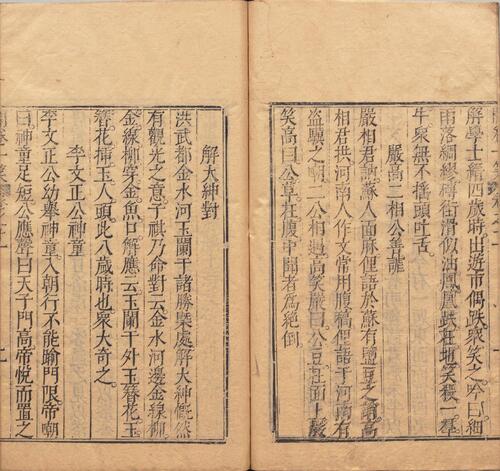 解學士縉四歲時出遊市偶跌衆笑之吟曰細
雨落綢繆磚街滑似油鳳凰跌在地笑殺一羣
牛衆無不搖頭吐舌
嚴高二相公善謔
嚴相君訥蘇人面麻俚語於蘇有鹽豆之誚高
相君拱河南人作文常用腹稿俚語于河南有
盜驢之朝二公相遇高笑嚴曰公豆在面上嚴
笑高曰公草在腹中聞者爲絕倒
解大紳對
洪武都金水河玉闌干諸勝槩處解大紳慨然
有觀光之意子祺乃命對云金水河邊金線柳
金線柳穿金魚口解應云玉闌干外玉簪花玉
簪花插玉人頭此八歲時也衆大奇之
李文正公神童
李文正公幼舉神童入朝行不能踰門限帝嘲
曰神童足短公應聲曰天子門高帝悅而置之